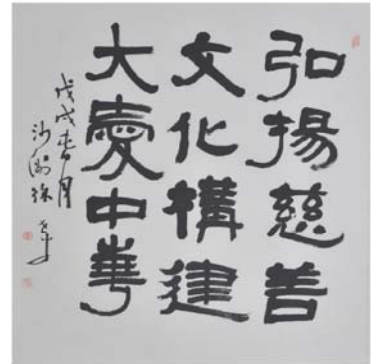 弘揚慈善
文化構建
大愛中華
戊戌春月